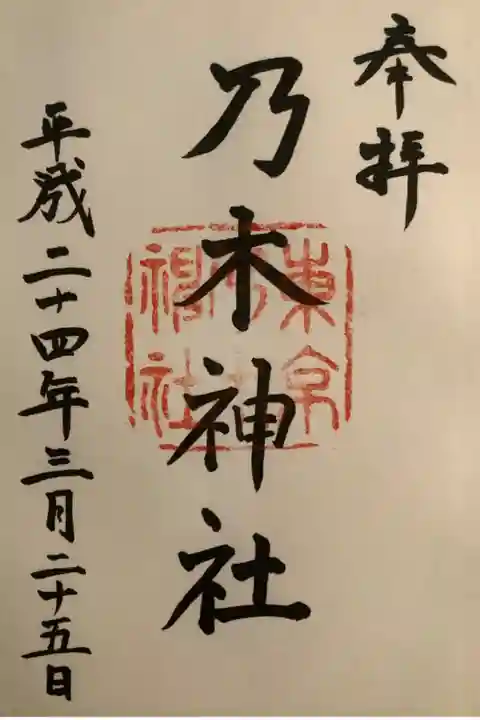 奉拝
乃木神社
東京乃木神社
平成二十四年三月二十五日